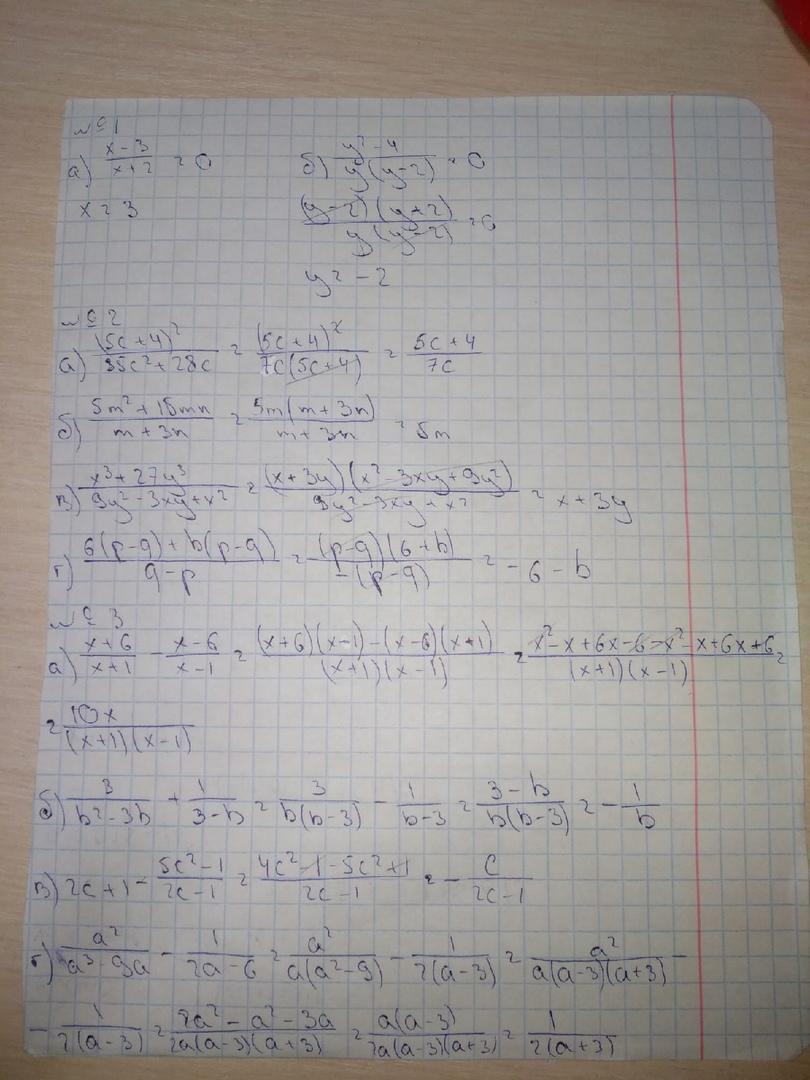 №1
а) (x-3)/(x+2) = 0 б) (y²-4)/(y(y-2)) = 0
x = 3 ((y-2)(y+2))/(y(y-2)) = 0
y = -2
№2
а) (5c+4)²/(35c²+28c) = (5c+4)²/(7c(5c+4)) = (5c+4)/(7c)
б) (5m²+15mn)/(m+3n) = (5m(m+3n))/(m+3n) = 5m
в) (x³+27y³)/(9y²-3xy+x²) = ((x+3y)(x²-3xy+9y²))/(9y²-3xy+x²) = x+3y
г) (6(p-q)+b(p-q))/(q-p) = ((p-q)(6+b))/(-(p-q)) = -6-b
№3
а) (x+6)/(x+1) - (x-6)/(x-1) = ((x+6)(x-1)-(x-6)(x+1))/((x+1)(x-1)) = (x²-x+6x-6-x²-x+6x+6)/((x+1)(x-1)) =
= 10x/((x+1)(x-1))
б) 3/(b²-3b) + 1/(3-b) = 3/(b(b-3)) - 1/(b-3) = (3-b)/(b(b-3)) = -1/b
в) 2c+1 - (5c²-1)/(2c-1) = (4c²-1-5c²+1)/(2c-1) = -c/(2c-1)
г) a²/(a³-9a) - 1/(2a-6) = a²/(a(a²-9)) - 1/(2(a-3)) = a²/(a(a-3)(a+3)) -
- 1/(2(a-3)) = (2a²-a²-3a)/(2a(a-3)(a+3)) = (a(a-3))/(2a(a-3)(a+3)) = 1/(2(a+3))